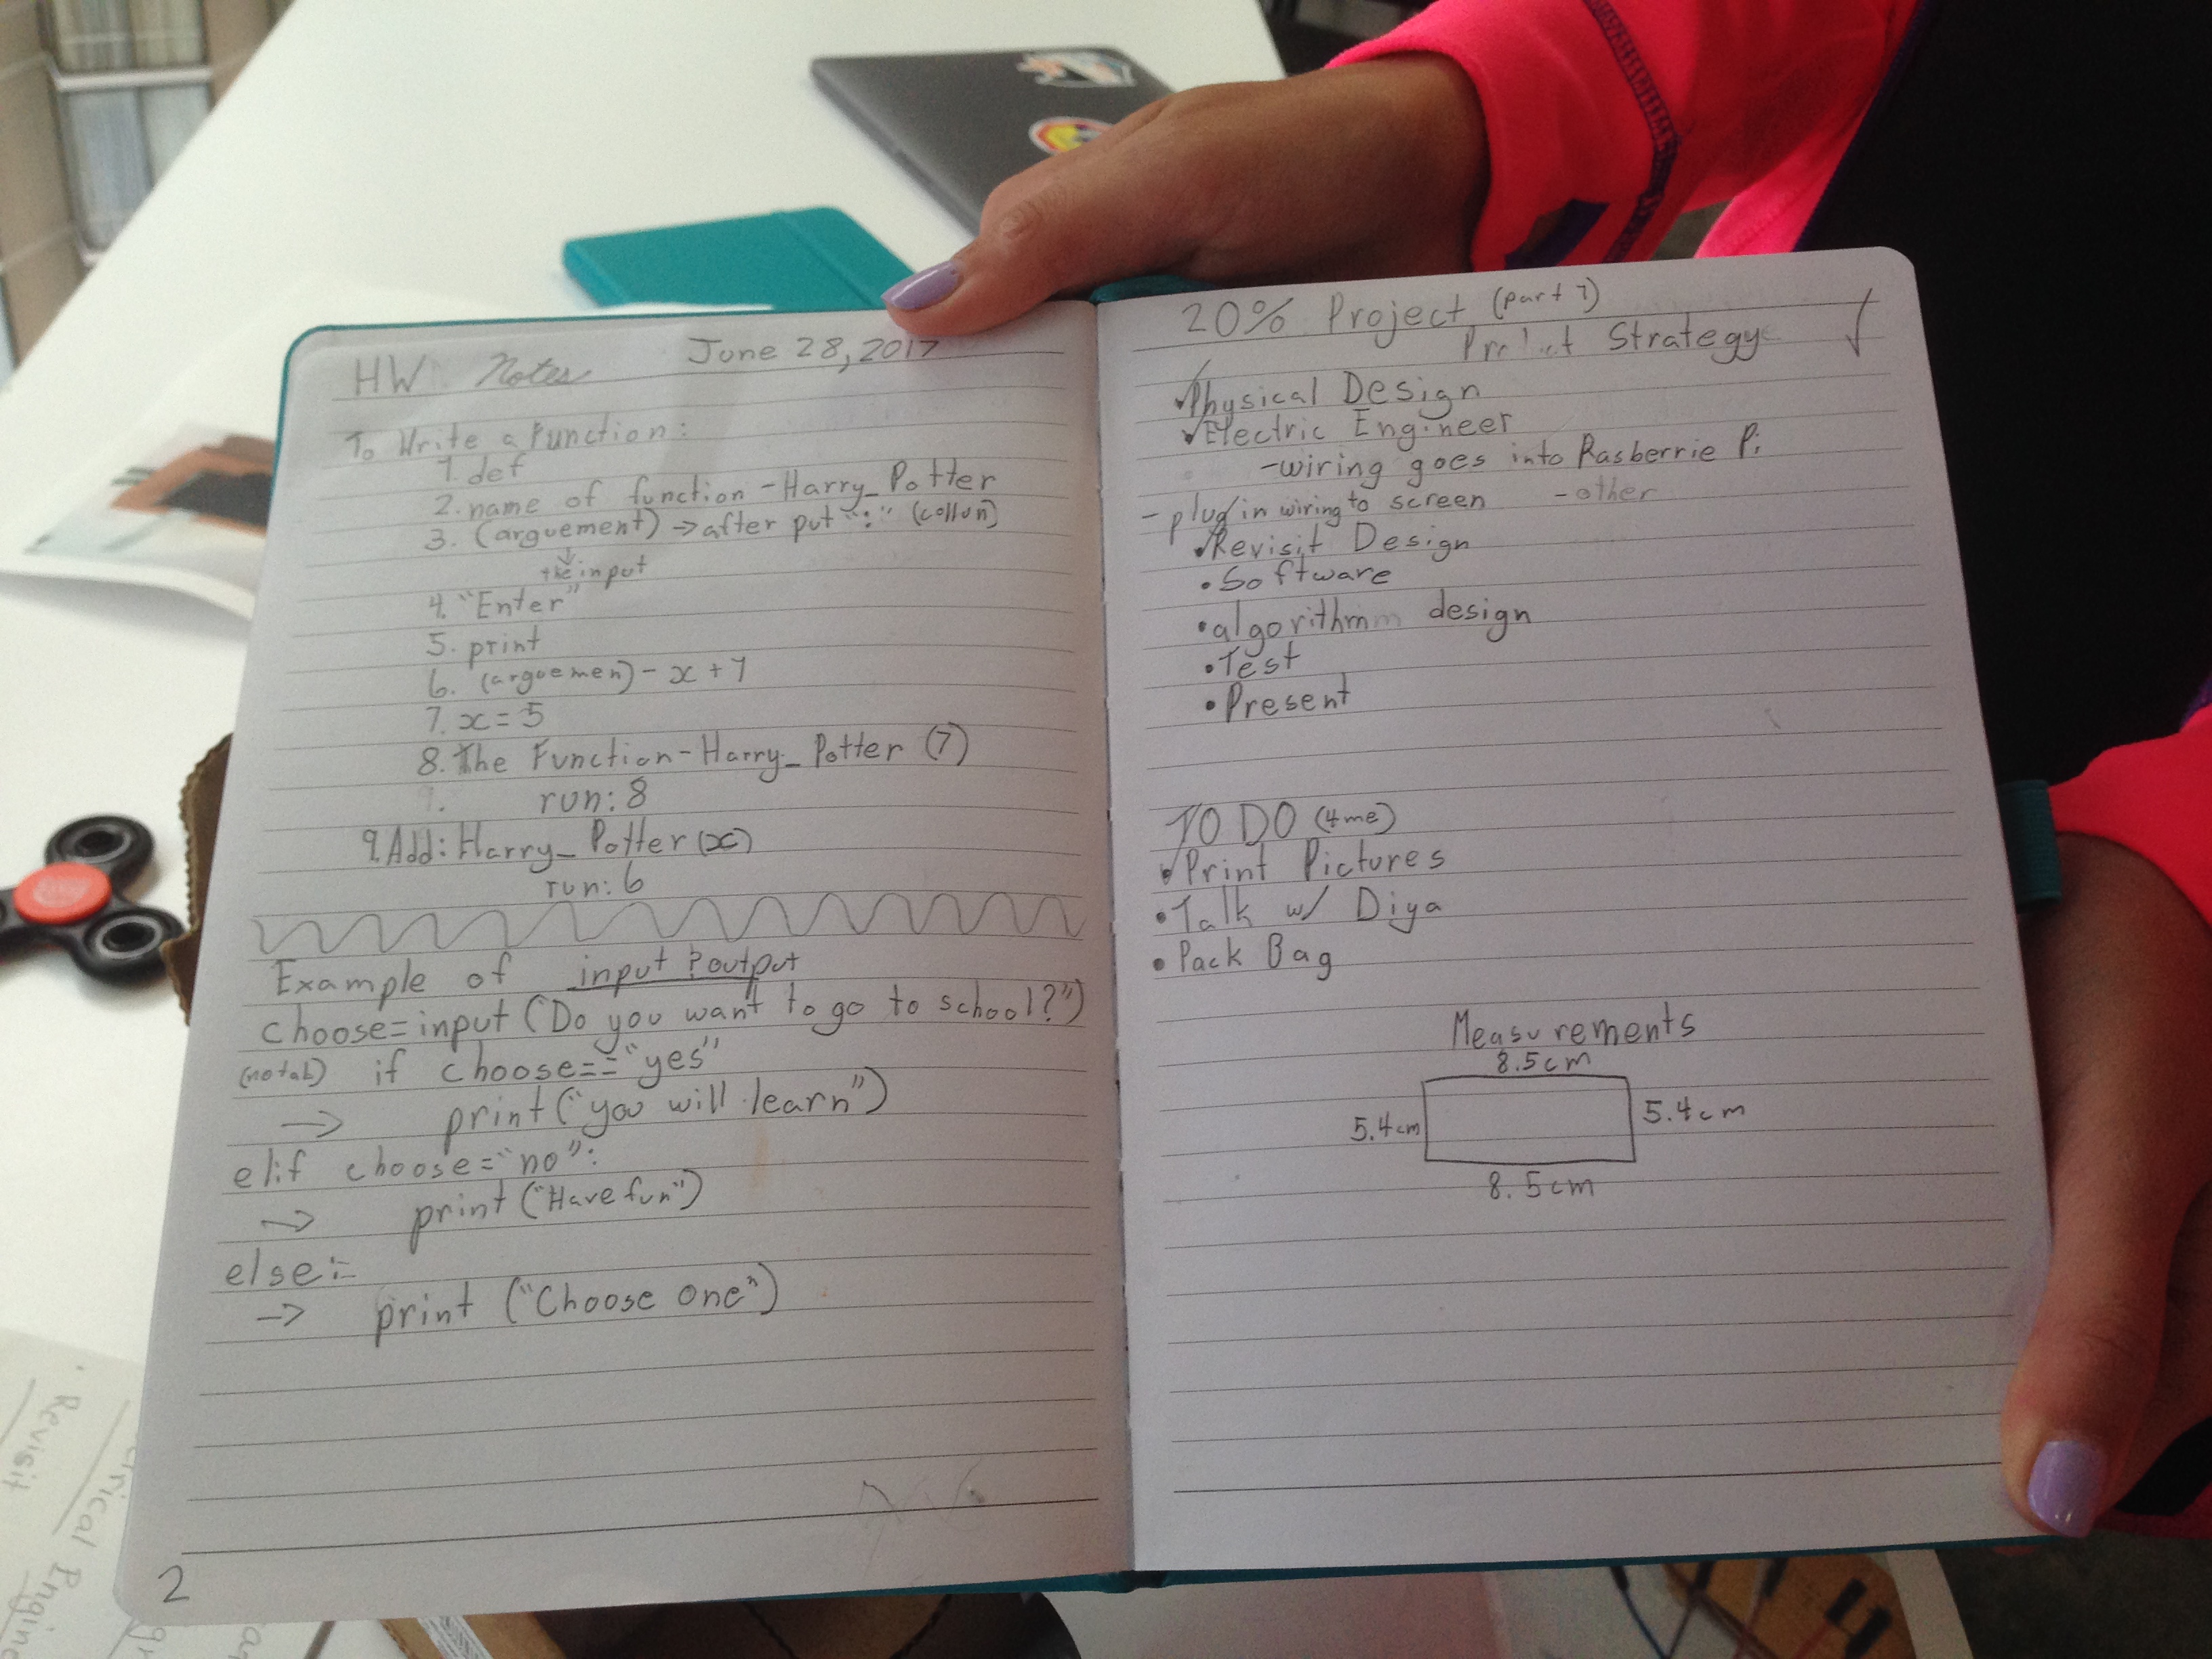 HW Notes June 28, 2017
To Write a Function:
1. def
2. name of function - Harry_Potter
3. (arguement) → after put ":" (collon)
↓
the input
4. "Enter"
5. print
6. (arguemen) - x + 1
7. x = 5
8. The Function - Harry_Potter (7)
run: 8
9. Add: Harry_Potter (x)
run: 6
Example of input ? output
choose=input ("Do you want to go to school?")
(no tab) if choose=="yes"
→ print("you will learn")
elif choose="no":
→ print ("Have fun")
else:
→ print ("Choose one")
2
20% Project (part 1)
Strategy ✓
✓Physical Design
✓Electric Engineer
-wiring goes into Rasberrie Pi
- plug in wiring to screen - other
✓Revisit Design
•Software
•algorithmm design
•Test
•Present
TO DO (4me)
✓Print Pictures
•Talk w/ Diya
•Pack Bag
Measurements
8.5cm
5.4cm 5.4cm
8.5cm
Revisit